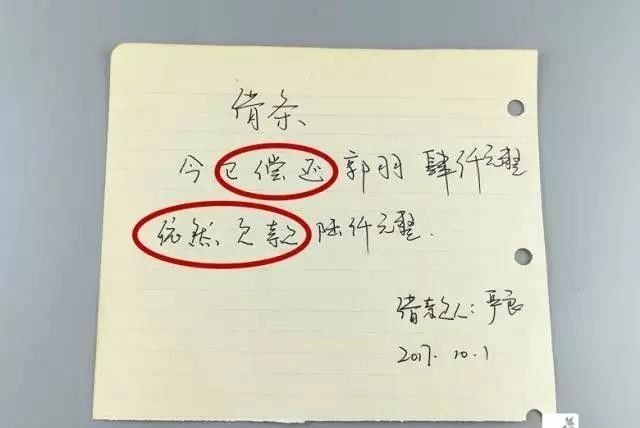 借条
今已偿还郭羽 肆仟元整
依然欠款陆仟元整.
借款人:严良
2017.10.1